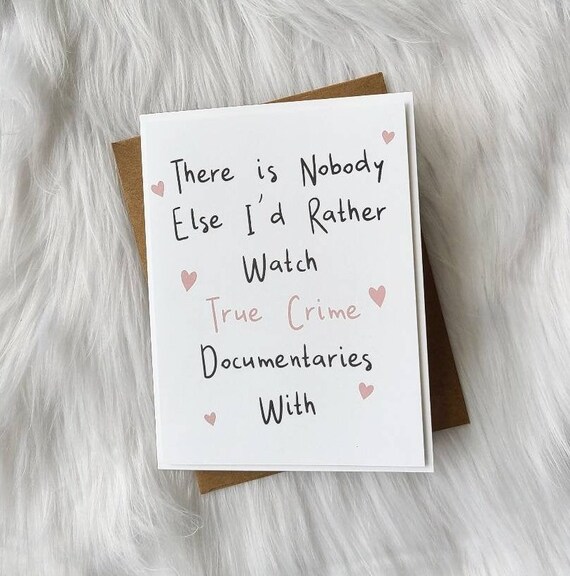 There is Nobody
Else I'd Rather
Watch
True Crime
Documentaries
With